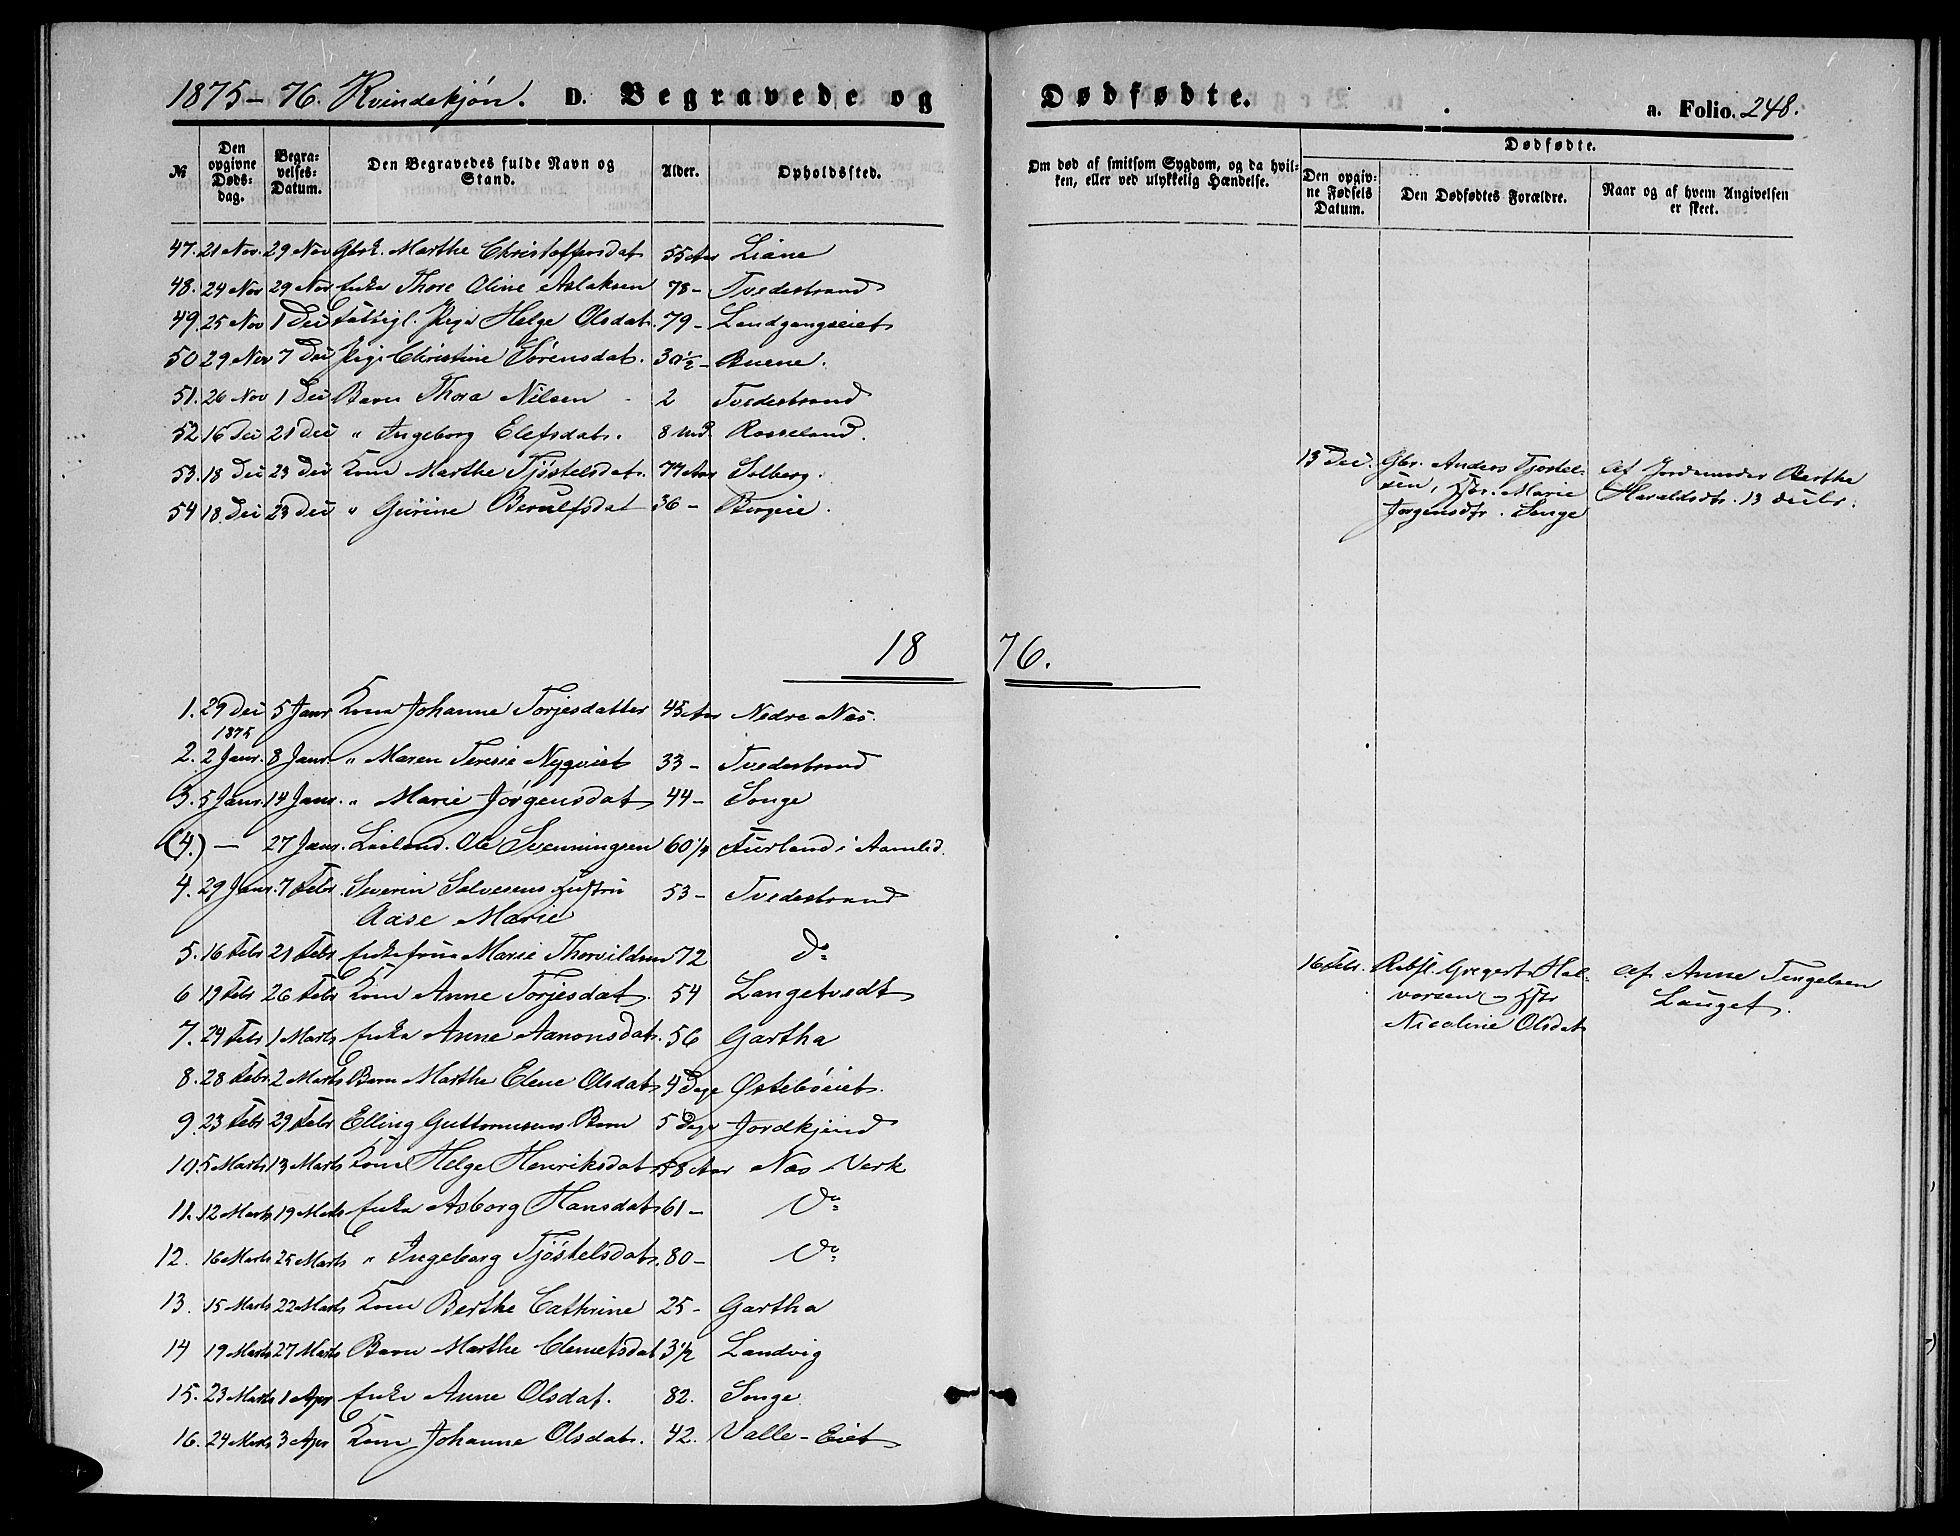 1875-76. Kvindekjøn. D. Begravede og Dødfødte. a. Folio. 248.
№ Den opgivne Dødsdag. Begravelses-Datum. Den Begravedes fulde Navn og Stand. Alder. Opholdssted. Om død af smitsom Sygdom, og da hvilken, eller ved ulykkelig Hændelse. Dødfødte. Den opgivne Fødsels Datum. Den Dødfødtes Forældre. Naar og af hvem Angivelsen er skeet.
47. 21 Nov. 29 Nov Marthe Christoffersdat 55 Aar Liane
48. 24 Nov 29 Nov Enke Thore Oline Aslaksen 78 - Tvedestrand
49. 25 Nov 1 Dec Fattigl. Pige Helge Olsdat. 79 - Landgangseiet
50 29 Nov 7 Dec Pige Christine Sørensdat. 30½ - Buene.
51. 26 Nov 1 Dec Barn Thora Nilsen - 2 Tvedestrand
52 16 Dec 21 Dec " Ingeborg Elefsdat. 8 Md. Rosseland.
53. 18 Dec 23 Dec Kone Marthe Tjøstelsdat. 77 Aar Solberg.
54 18 Dec 23 Dec " Gurine Berulfsdat 36 - Borgeie.
13 Dec. Gbr. Anders Tjostel-
sen, Hstr. Marie
Jorgensdtr. Songe
af Jordemoder Berthe
Haraldsdtr. 13 Decbr.
1876.
1. 29 Dec 1875 5 Janr Kone Johanne Torjesdatter 45 Aar Nedre Næs.
2. 2 Janr. 8 Janr. " Maren Teresie Nyqvist 33 - Tvedestrand
3. 5 Janr. 14 Janr. " Marie Jørgensdat 44 - Songe
(4.) - 27 Janr. Ole Svenningsen 60 Aurland i Aamlid.
4. 29 Janr. 7 Febr. Severin Salvesens Hustru 53 - Tvedestrand
Aase Marie
5. 16 Febr 21 Febr Enkefrue Marie Thorvildsen 72 do
6 19 Febr 26 Febr Kone Anne Torjesdat. 54 Langetvedt
7. 24 Febr 1 Marts Enke Anne Aanonsdat. 56 Gartha
8. 28 Febr 2 Marts Barn Marthe Elene Olsdat 4 Dage Østebøeiet.
9. 23 Febr 29 Febr Elling Guttormsens Barn 5 Dage Jordkjend
10. 5 Marts 13 Marts Kone Helge Henriksdat 58 Aar Næs Verk
11. 12 Marts 19 Marts Enke Asborg Hansdat 61 - do
12. 16 Marts 25 Marts " Ingeborg Tjøstelsdat. 80 - do
13. 15 Marts 22 Marts Kone Berthe Cathrine 25 - Gartha
14 19 Marts 27 Marts Barn Marthe Clemetsdat 3½ Landvig
15. 23 Marts 1 Apr Enke Anne Olsdat. 82. Songe
16. 24 Marts 3 Apr Kone Johanne Olsdat. 42. Valle-Eiet
16 Febr. Gregert Hal-
vorsen - Hstr
Nicoline Olsdat
af Anne Tengelsen
Lauget.